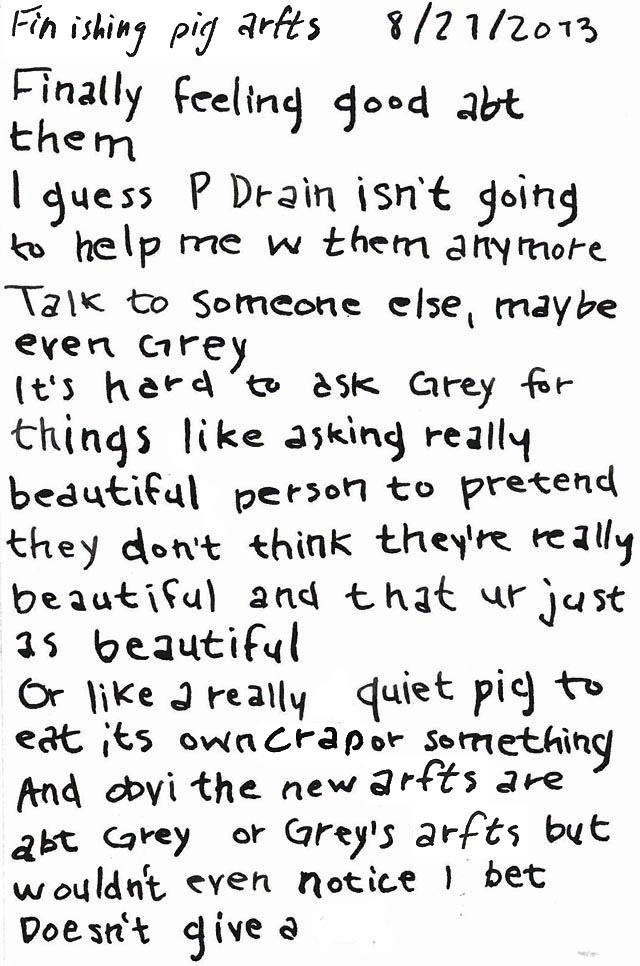 Finishing pig arfts 8/27/2013
Finally feeling good abt
them
I guess P Drain isn't going
to help me w them anymore
Talk to someone else, maybe
even Grey
It's hard to ask Grey for
things like asking really
beautiful person to pretend
they don't think they're really
beautiful and that ur just
as beautiful
Or like a really quiet pig to
eat its own crap or something
And obvi the new arfts are
abt Grey or Grey's arfts but
wouldn't even notice I bet
Doesn't give a